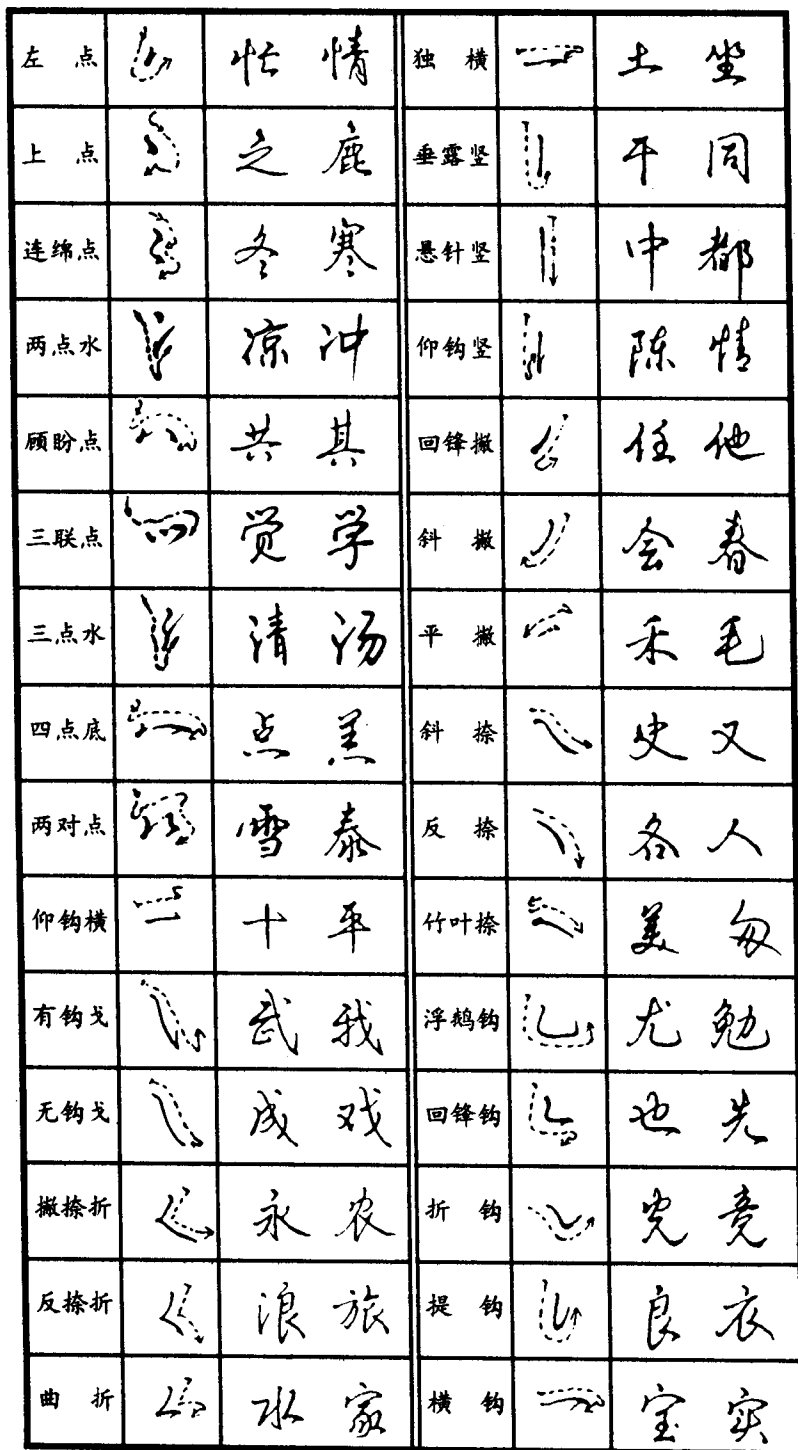 左点 忙 情 独横 土 坐
上点 之 鹿 垂露竖 干 同
连绵点 冬 寒 悬针竖 中 都
两点水 凉 冲 仰钩竖 陈 情
顾盼点 共 其 回锋撇 任 他
三联点 觉 学 斜撇 会 春
三点水 清 汤 平撇 禾 毛
四点底 点 羔 斜捺 史 又
两对点 雪 泰 反捺 各 人
仰钩横 十 平 竹叶捺 美 匆
有钩戈 武 我 浮鹅钩 尤 勉
无钩戈 成 戏 回锋钩 也 先
撇捺折 永 农 折钩 党 竞
反捺折 浪 旅 提钩 良 衣
曲折 水 家 横钩 宝 实